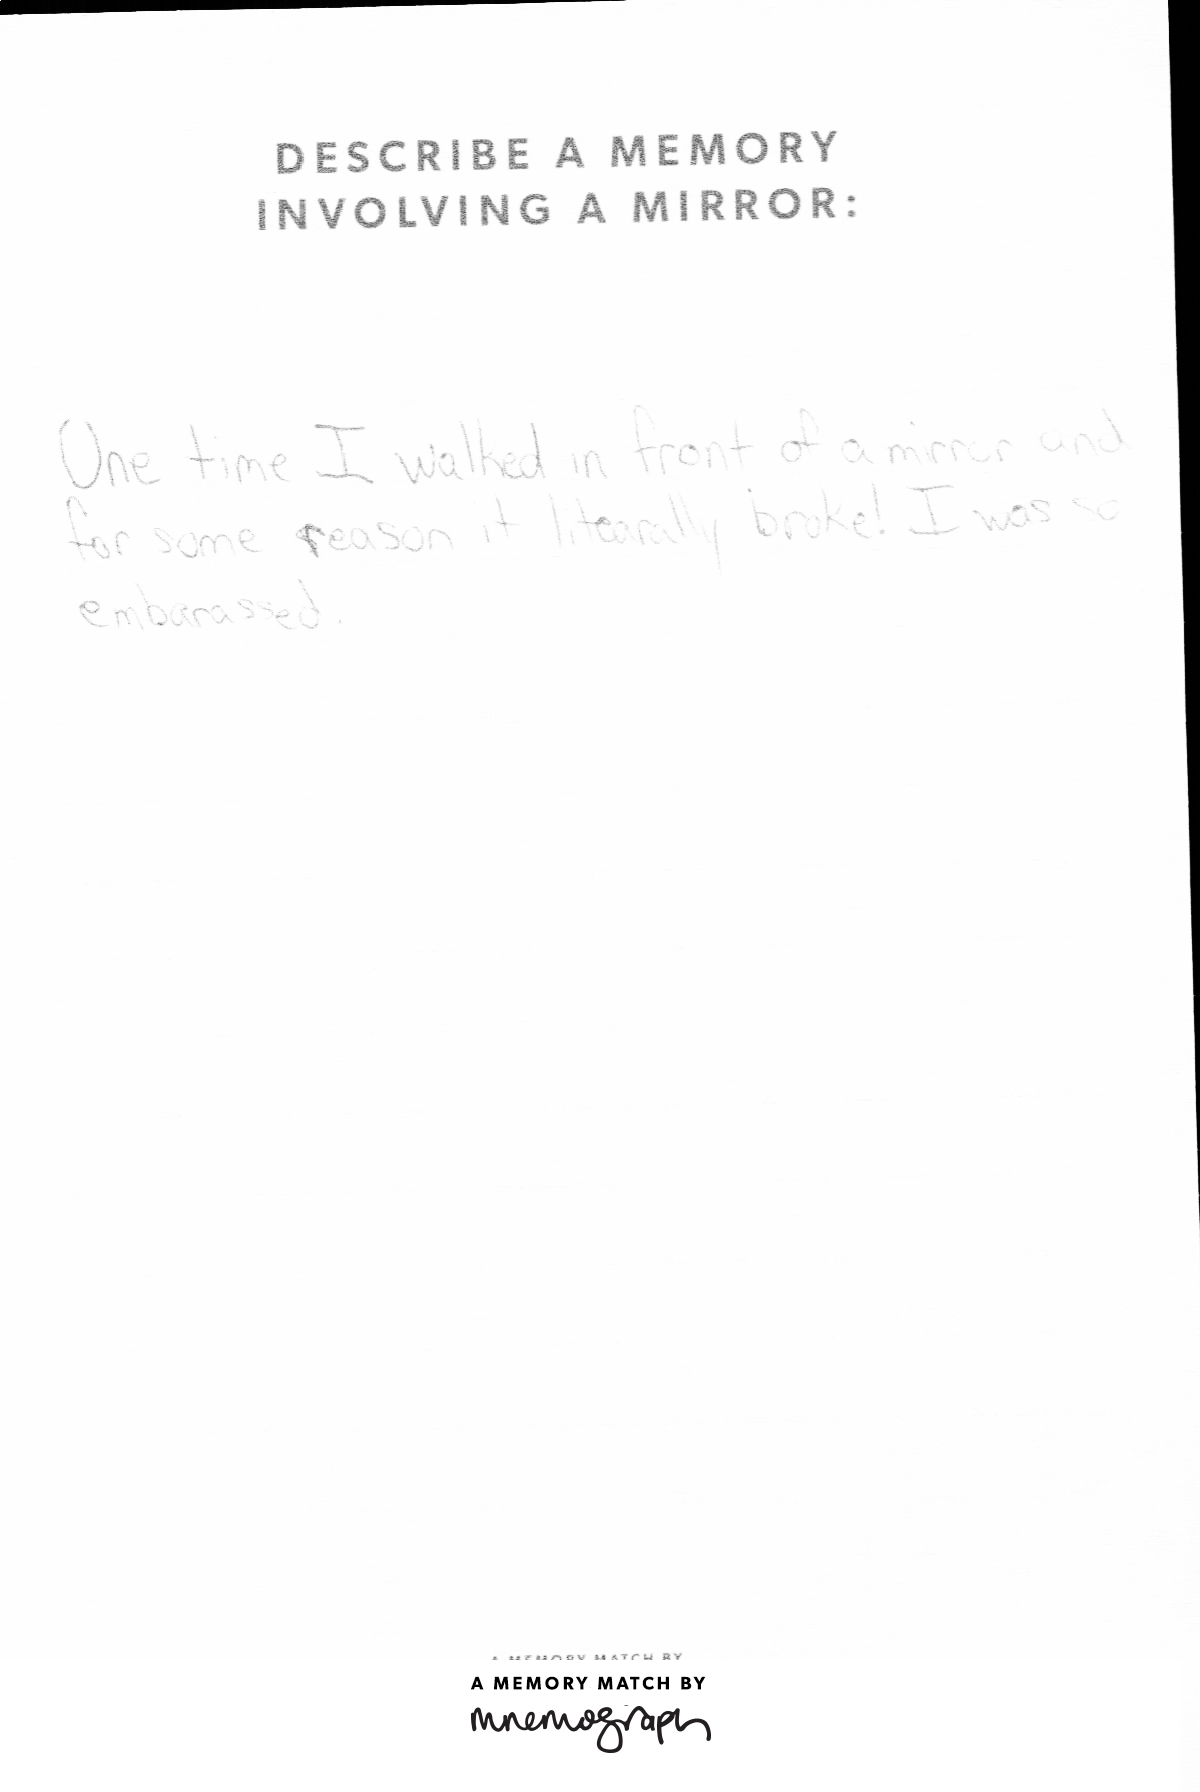 DESCRIBE A MEMORY
INVOLVING A MIRROR:
One time I walked in front of a mirror and
for some reason it litearally broke! I was so
embarassed.
A MEMORY MATCH BY
A MEMORY MATCH BY
mnemograph